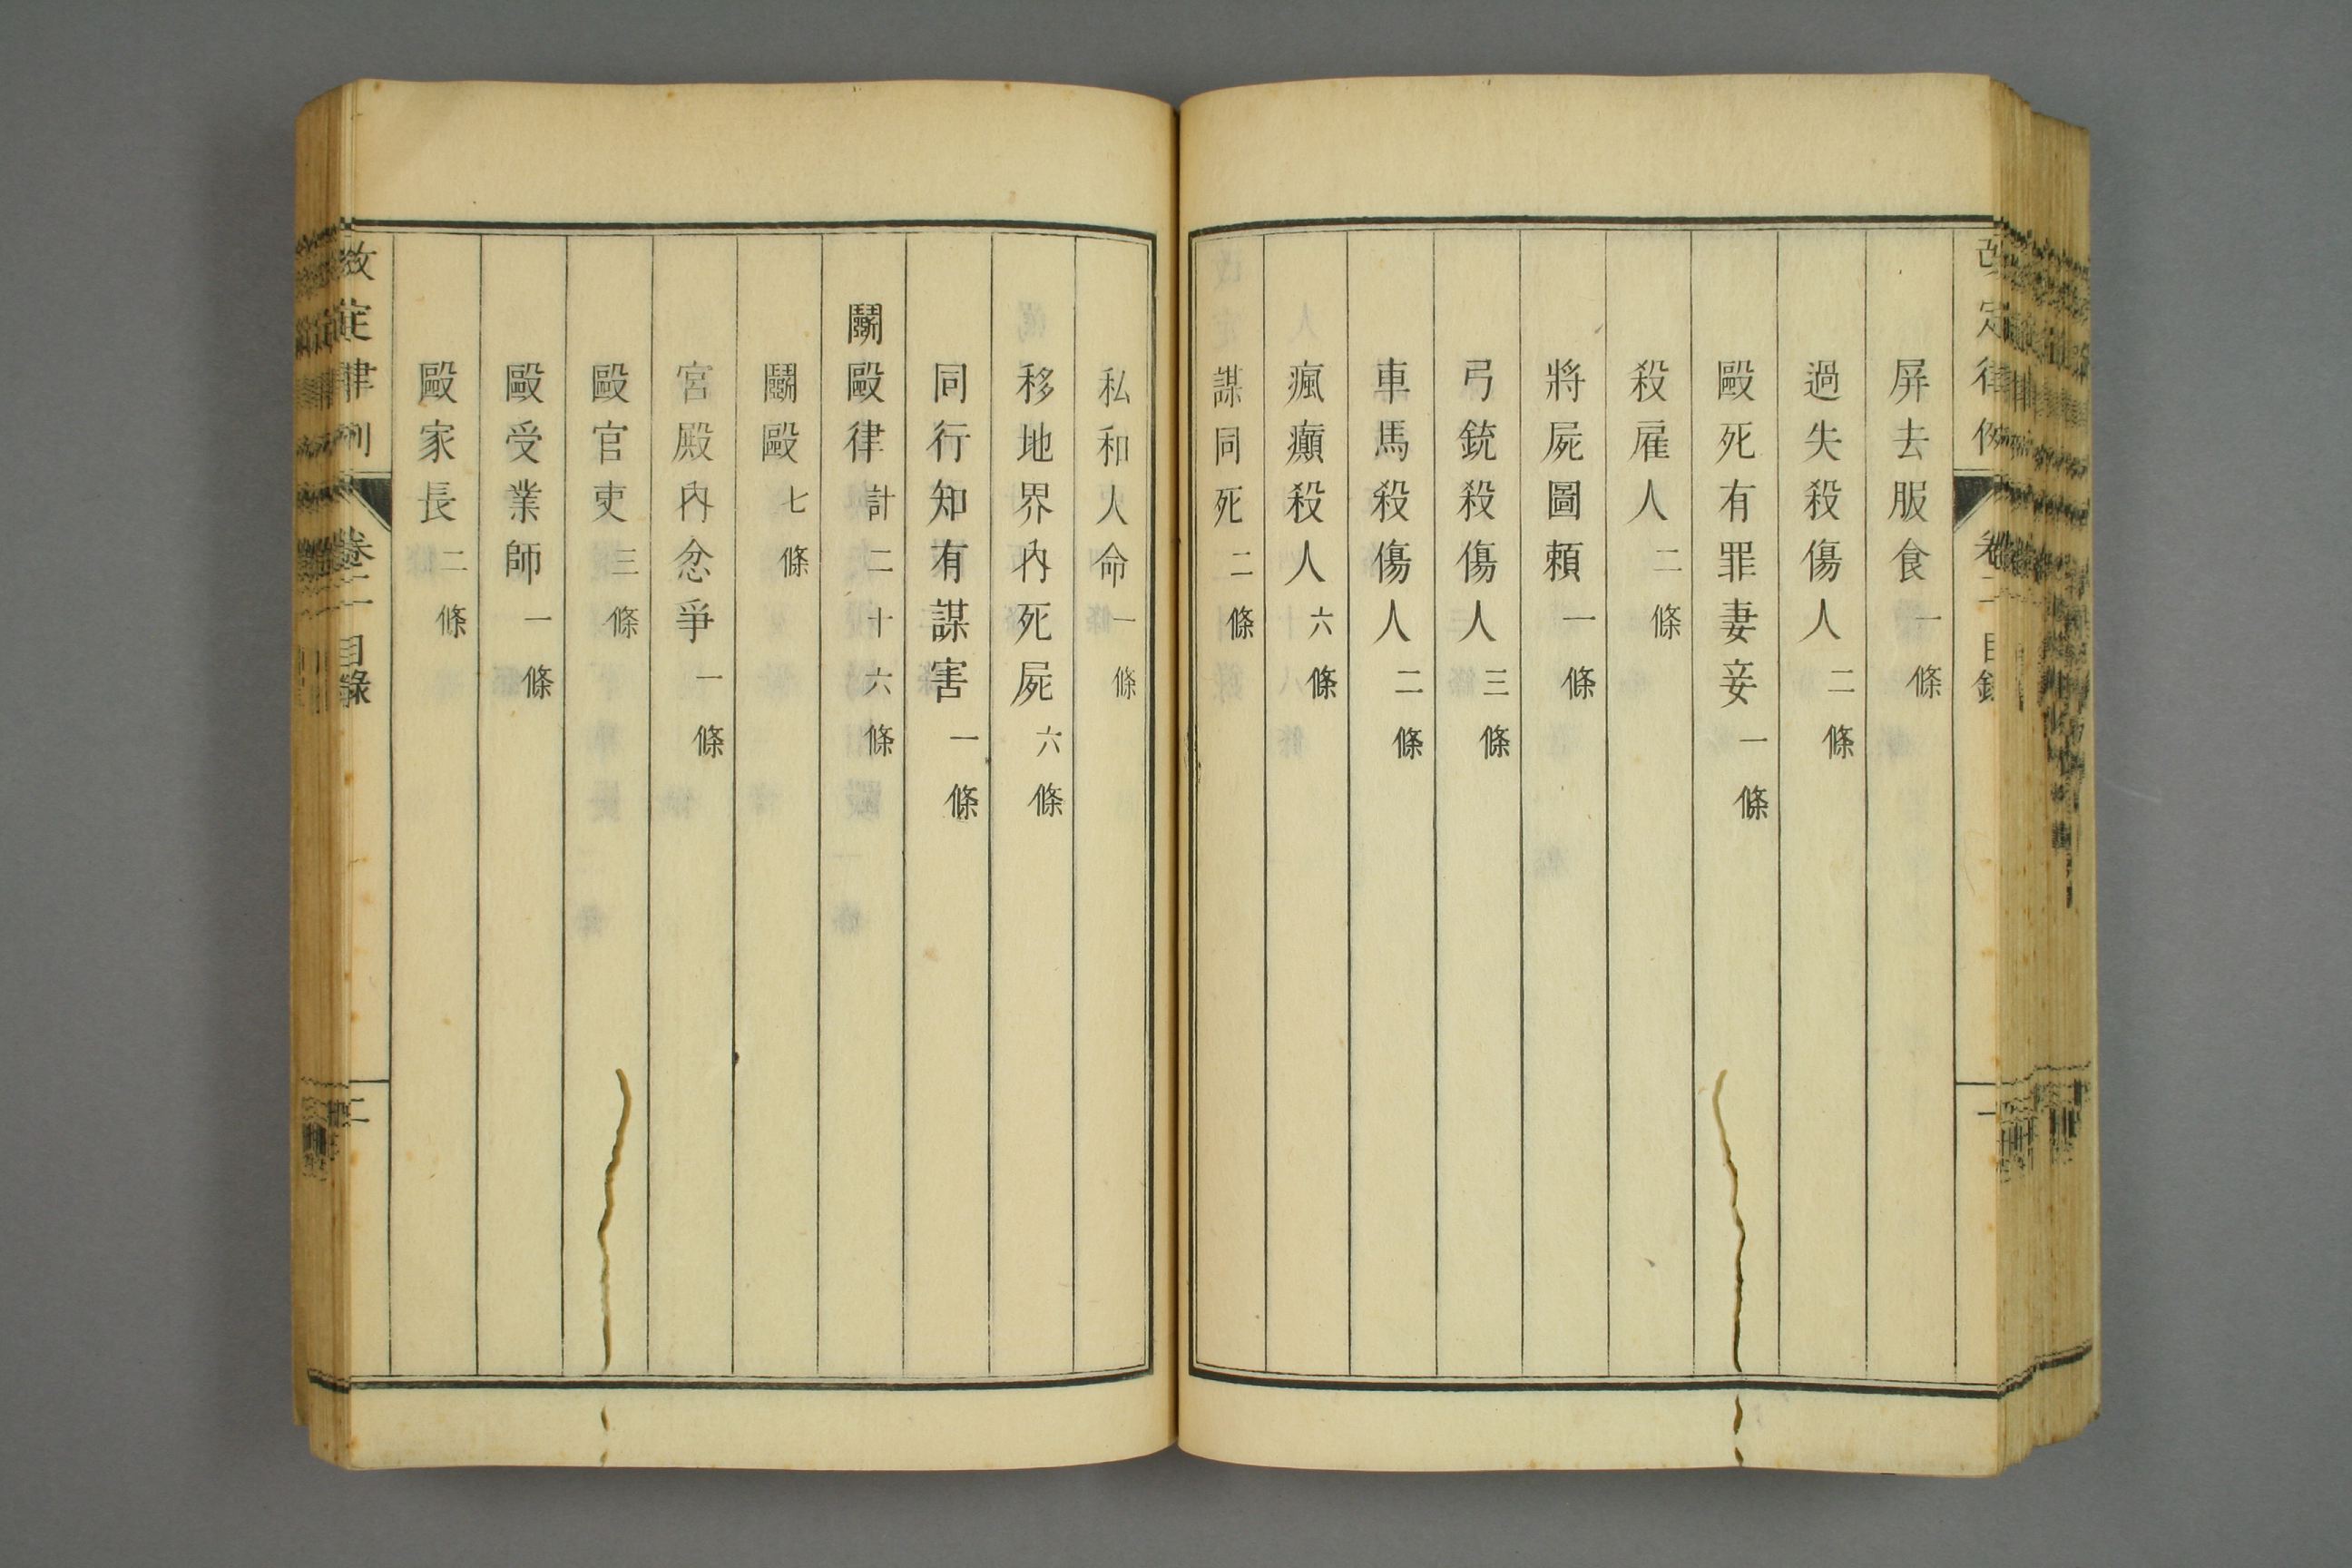 改定律例 卷二 目錄 一
屏去服食 一條
過失殺傷人 二條
毆死有罪妻妾 一條
殺雇人 二條
將屍圖賴 一條
弓銃殺傷人 三條
車馬殺傷人 二條
瘋癲殺人 六條
謀同死 二條
私和人命 一條
移地界內死屍 六條
同行知有謀害 一條
鬭毆律 計二十六條
鬭毆 七條
宮殿內忿爭 一條
毆官吏 三條
毆受業師 一條
毆家長 二條
改定律例 卷二 目錄 二